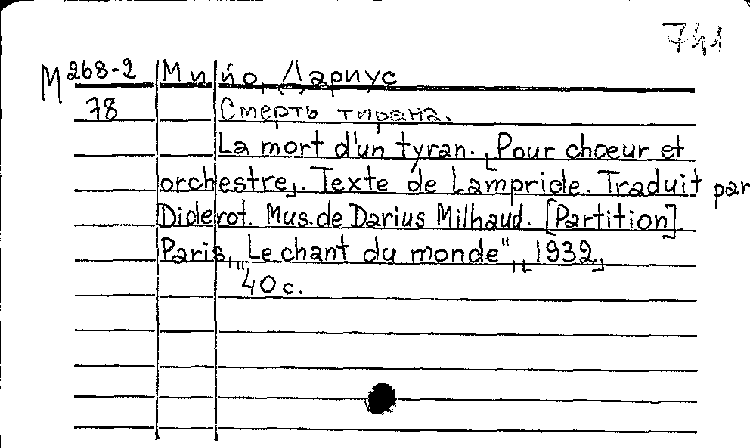 741
М 268-2 Мийо, Дариус
78 Смерть тирана.
La mort d'un tyran. [Pour chœur et
orchestre]. Texte de Lampride. Traduit par
Diderot. Mus. de Darius Milhaud. [Partition]
Paris, „Le chant du monde", [1932]
40 с.